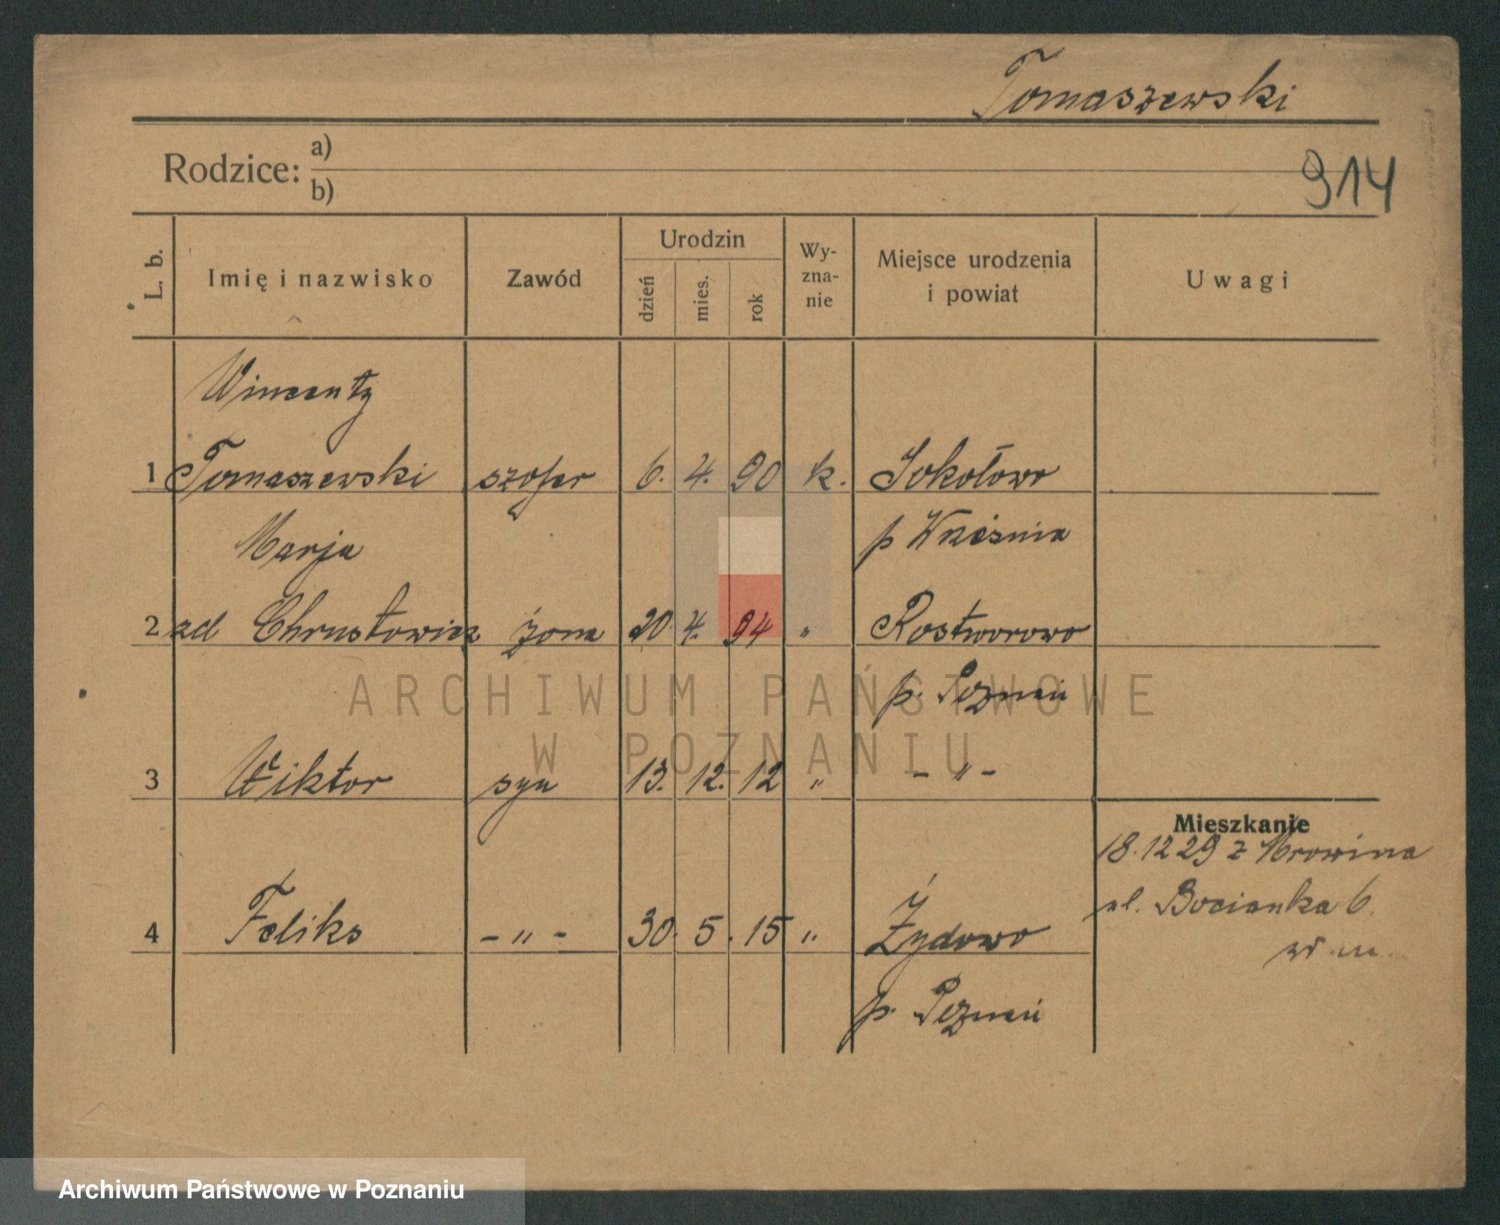 Tomaszewski
Rodzice: a)
b)
914
L. b.
Imię i nazwisko
Zawód
Urodzin
dzień
mies.
rok
Wy-
zna-
nie
Miejsce urodzenia
i powiat
Uwagi
Wincenty
1 Tomaszewski szofer 6. 4. 90 k. Sokołowo
Marja p Września
2 zd Chrustowicz żona 20. 4. 94 " Rostworowo
p. Poznań
3 Wiktor syn 13. 12. 12 " - " -
Mieszkanie
18.12 29 z Mrowina
ul. Bocianka 6.
4 Feliks - " - 30. 5. 15 " Żydowo
p. Poznań
ARCHIWUM PAŃSTWOWE
W POZNANIU
Archiwum Państwowe w Poznaniu